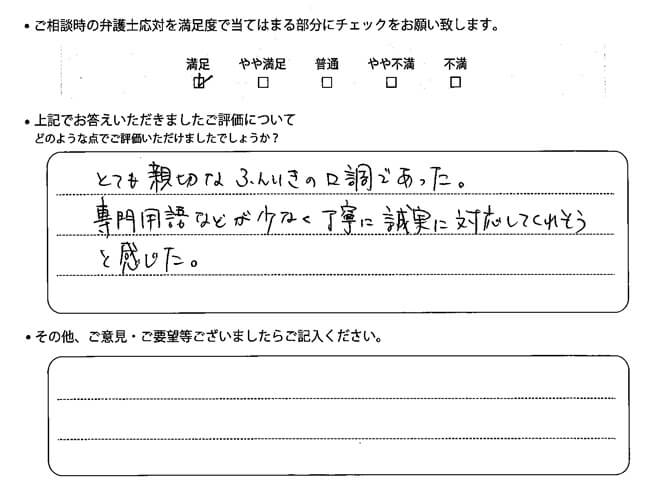 ・ご相談時の弁護士応対を満足度で当てはまる部分にチェックをお願い致します。
満足 やや満足 普通 やや不満 不満
・上記でお答えいただきましたご評価について
どのような点でご評価いただけましたでしょうか？
とても親切なふんいきの口調であった。
専門用語などが少なく丁寧に誠実に対応してくれそう
と感じた。
・その他、ご意見・ご要望等ございましたらご記入ください。